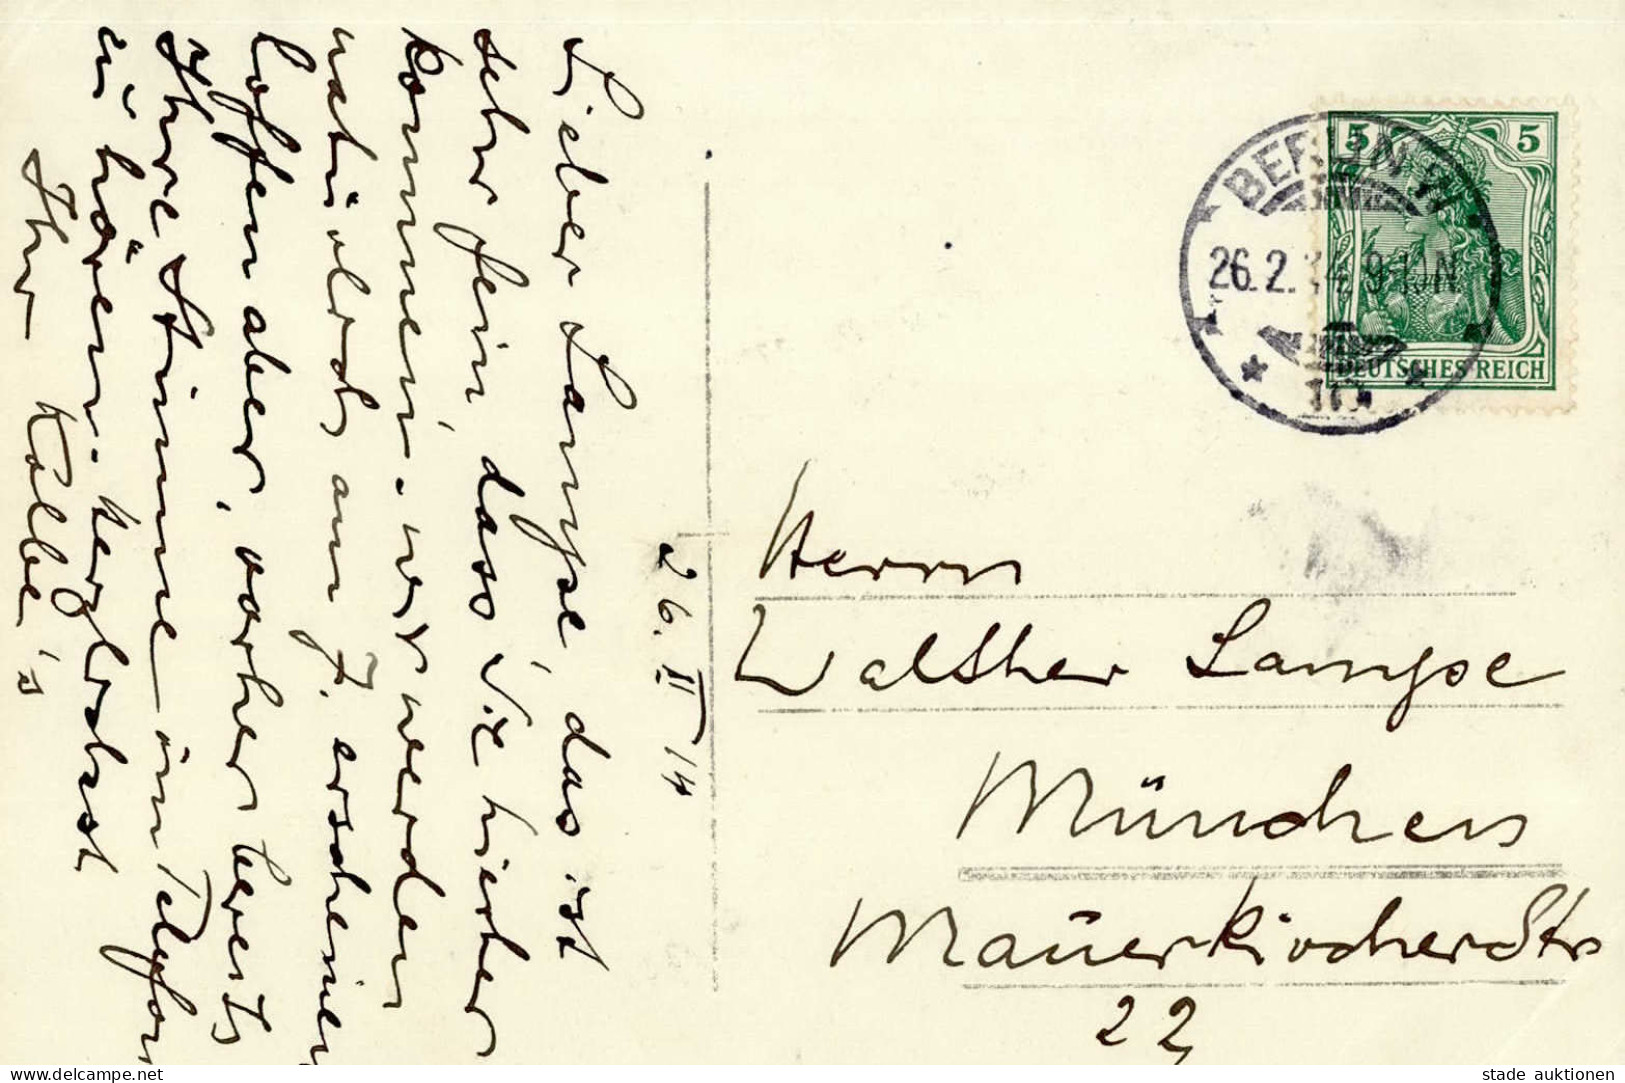 26. II 14
Lieber Lampe, das ist
sehr fein, dass Sie hierher
kommen. wir werden
natürlich am 7. erscheinen
hoffen aber, vorher bereits
Ihre Stimme im Telefon
zu hören. herzlichst
Ihr Kolbe's
BERLIN W.
26.2.14. 9-10N
5 5
DEUTSCHES REICH
Herrn
Walther Lampe
München
Mauerkircherstr
22
stade auktionen
www.delcampe.net